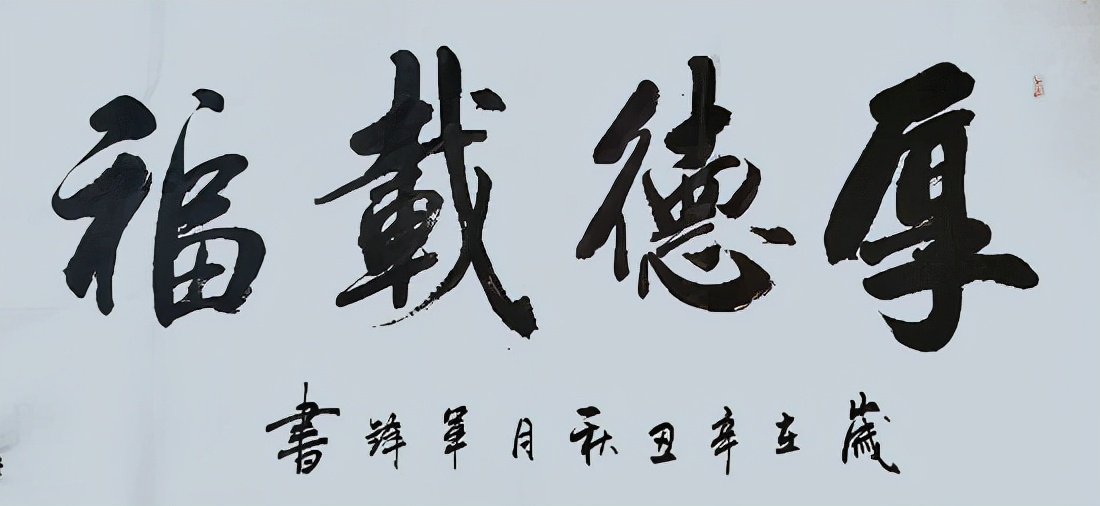 厚德載福
歲在辛丑秋月軍鋒書